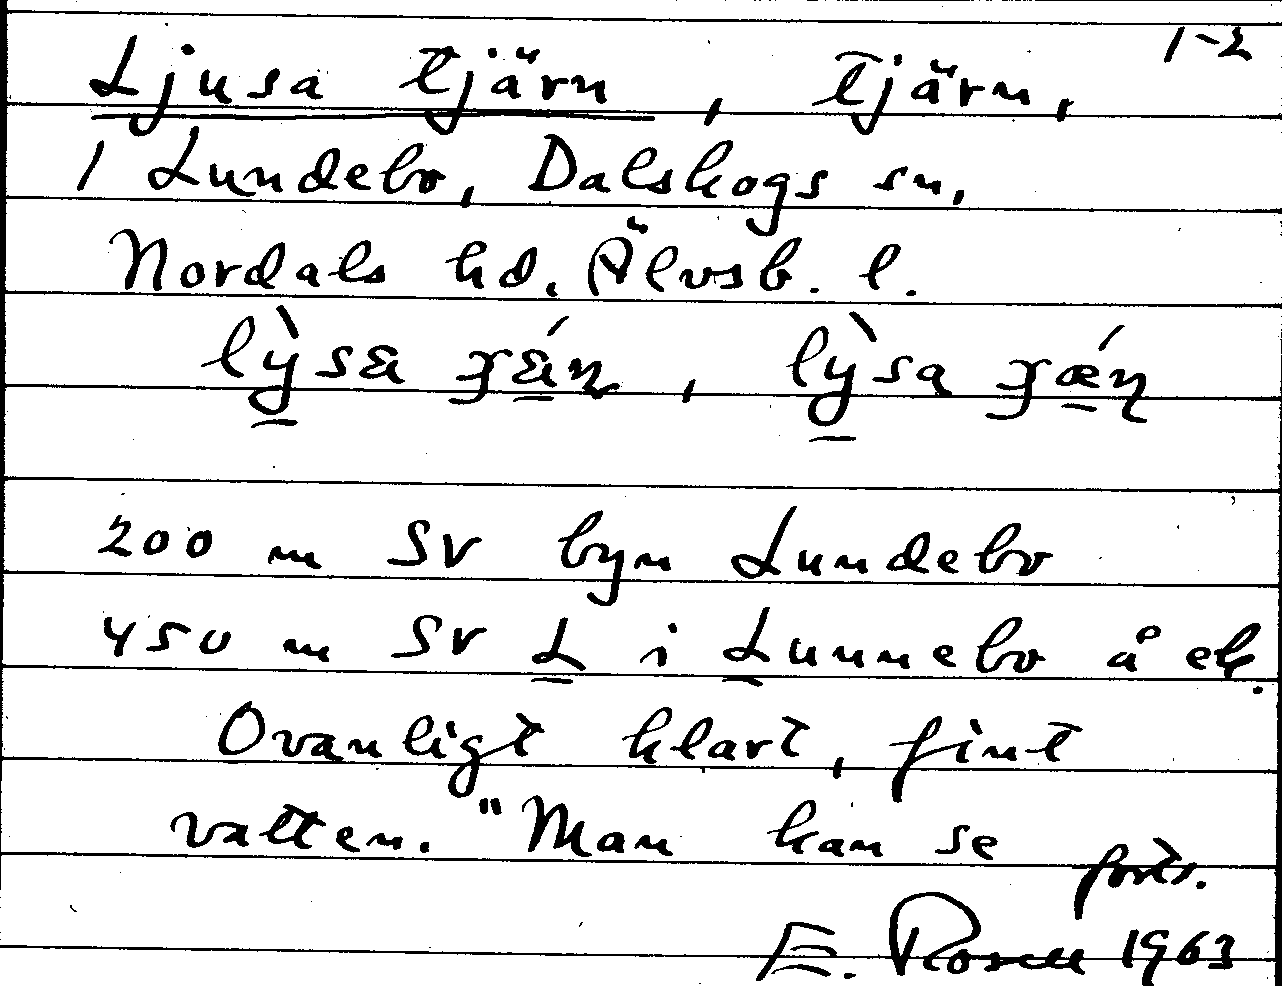 1-2
Ljusa tjärn, tjärn,
1 Lundebo, Dalskogs sn,
Nordals hd. Älvsb. l.
200 m SV byn Lundebo
450 m SV L i Lunnebo å ek.
Ovanligt klart, fint
vatten. "Man kan se
forts.
E. Rosell 1963